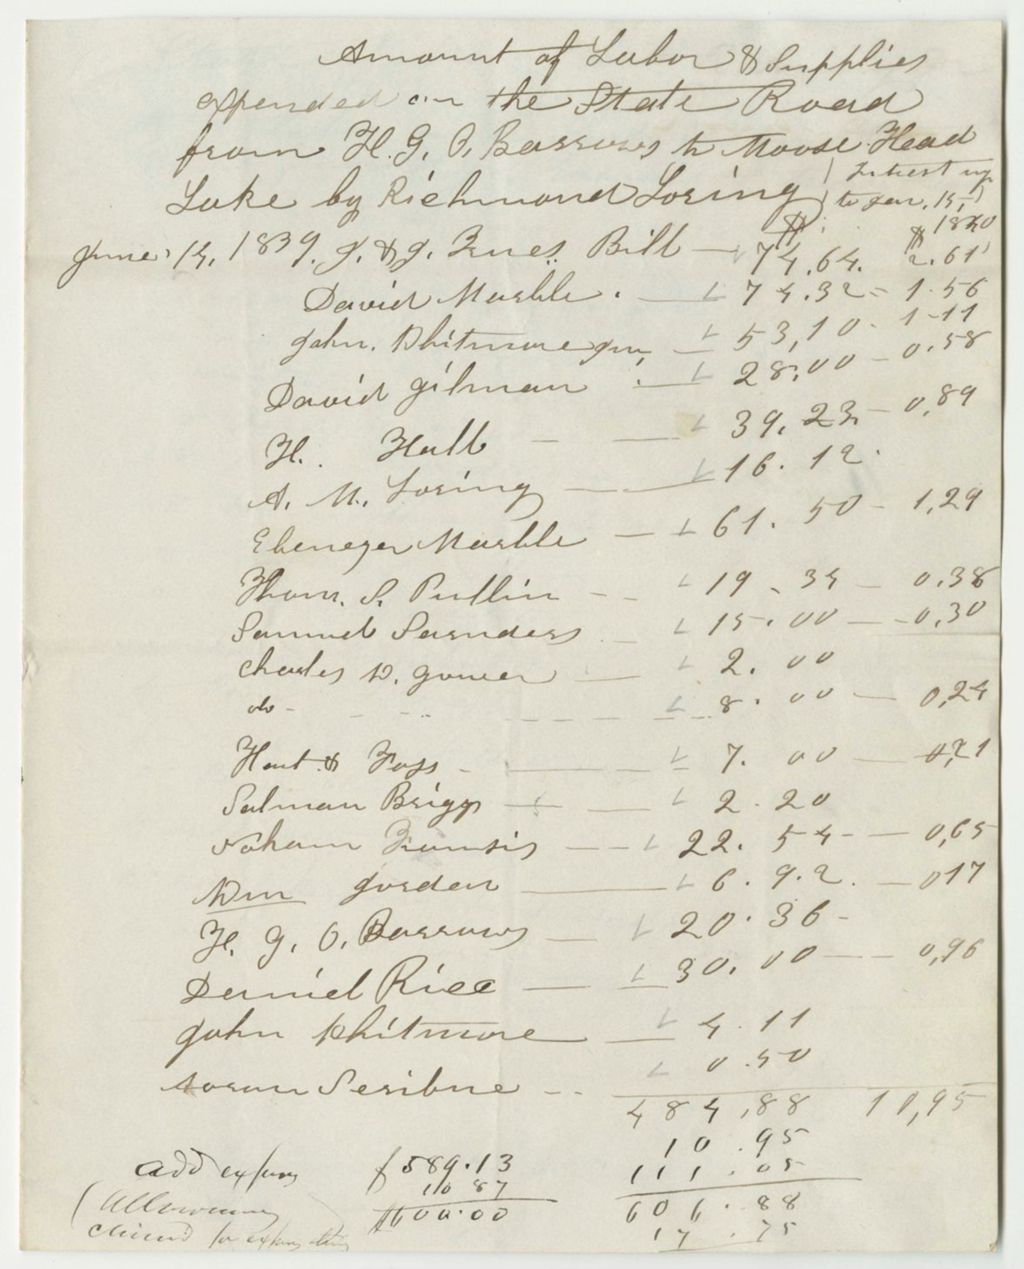 Amount of Labor & Supplies
expended on the State Road
from H. G. O. Barrows to Moose Head
Lake by Richmond Loring (Intrest up
to Jan. 15,
$ $ 1840
June 15, 1839. J. & J. Bill — 74.64. 2.61
David Marble. — 74.32 = 1.56
John. Whitmore Jnr, — 53,10 - 1.11
David Gilman — 28.00 — 0.58
H. Hall — — 39.23 — 0,89
A. M. Loring — 16.12.
Ebenezer Marble — 61.50 — 1,29
Thom. S. Pullin — 19.34 — 0.38
Samuel Saunders — 15.00 — 0,30
Charles D. Gower — 2.00
do - - - - 8.00 — 0,24
Hunt & Foss - — 7.00 — 0,21
Salman Briggs — — 2.20
Noham — — 22.54 — 0,65
Wm Jordan — 6.92. — 017
H. G. O. Barrows — 20.36 -
Daniel Rice — — 30.00 — 0,96
John Whitmore — 4.11
Scribne - - 0.50
484,88 10,95
10.95
add $589.13 111.05
10 87
$600.00 606.88
17.75
for